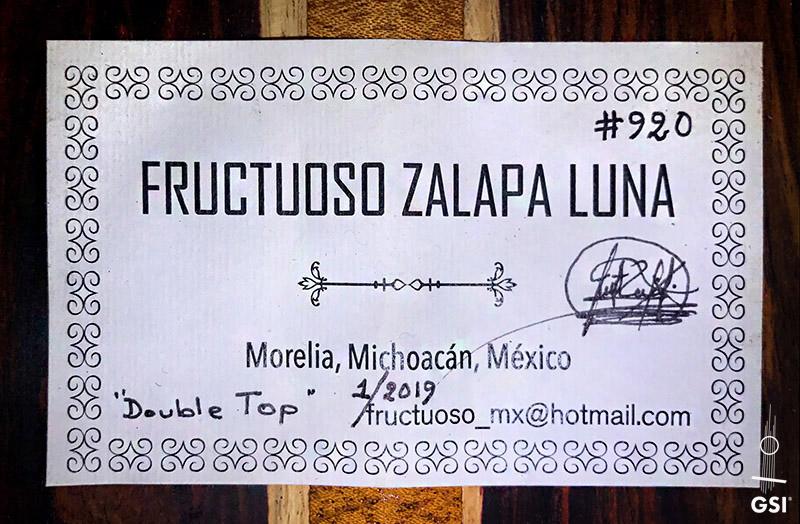 #920
FRUCTUOSO ZALAPA LUNA
Morelia, Michoacán, México
"Double Top" 1/2019
fructuoso_mx@hotmail.com
GSI®